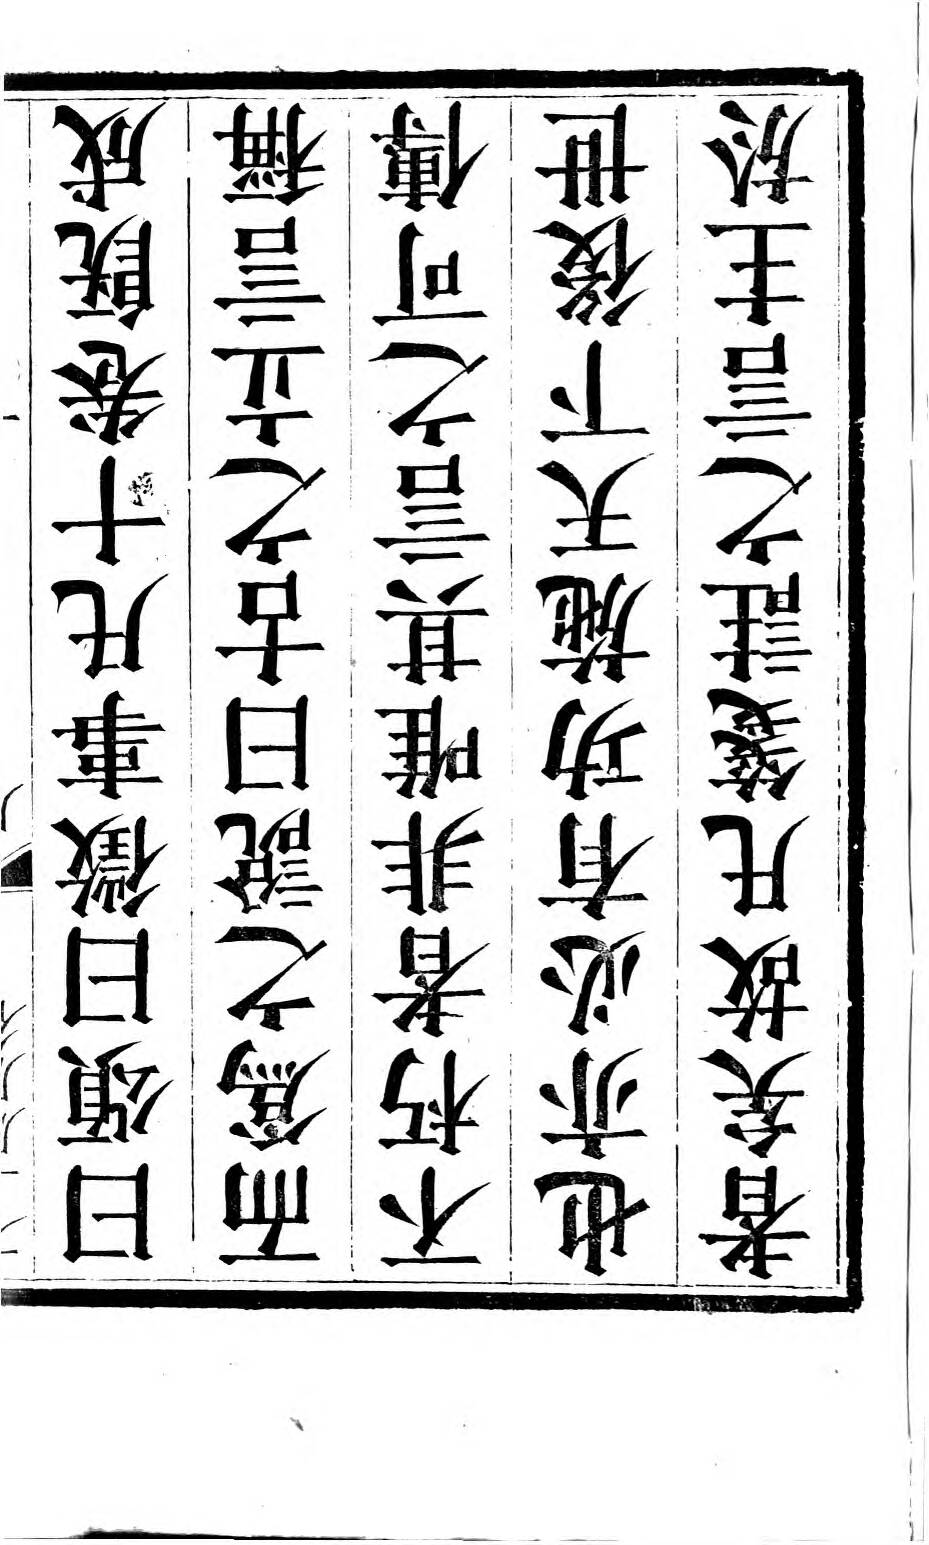 曰頌曰徵事凡十卷既成
而爲之說曰古之立言稱
不朽者非唯其言之可傳
也亦必有功施天下後世
者矣故凡箋註之言主於